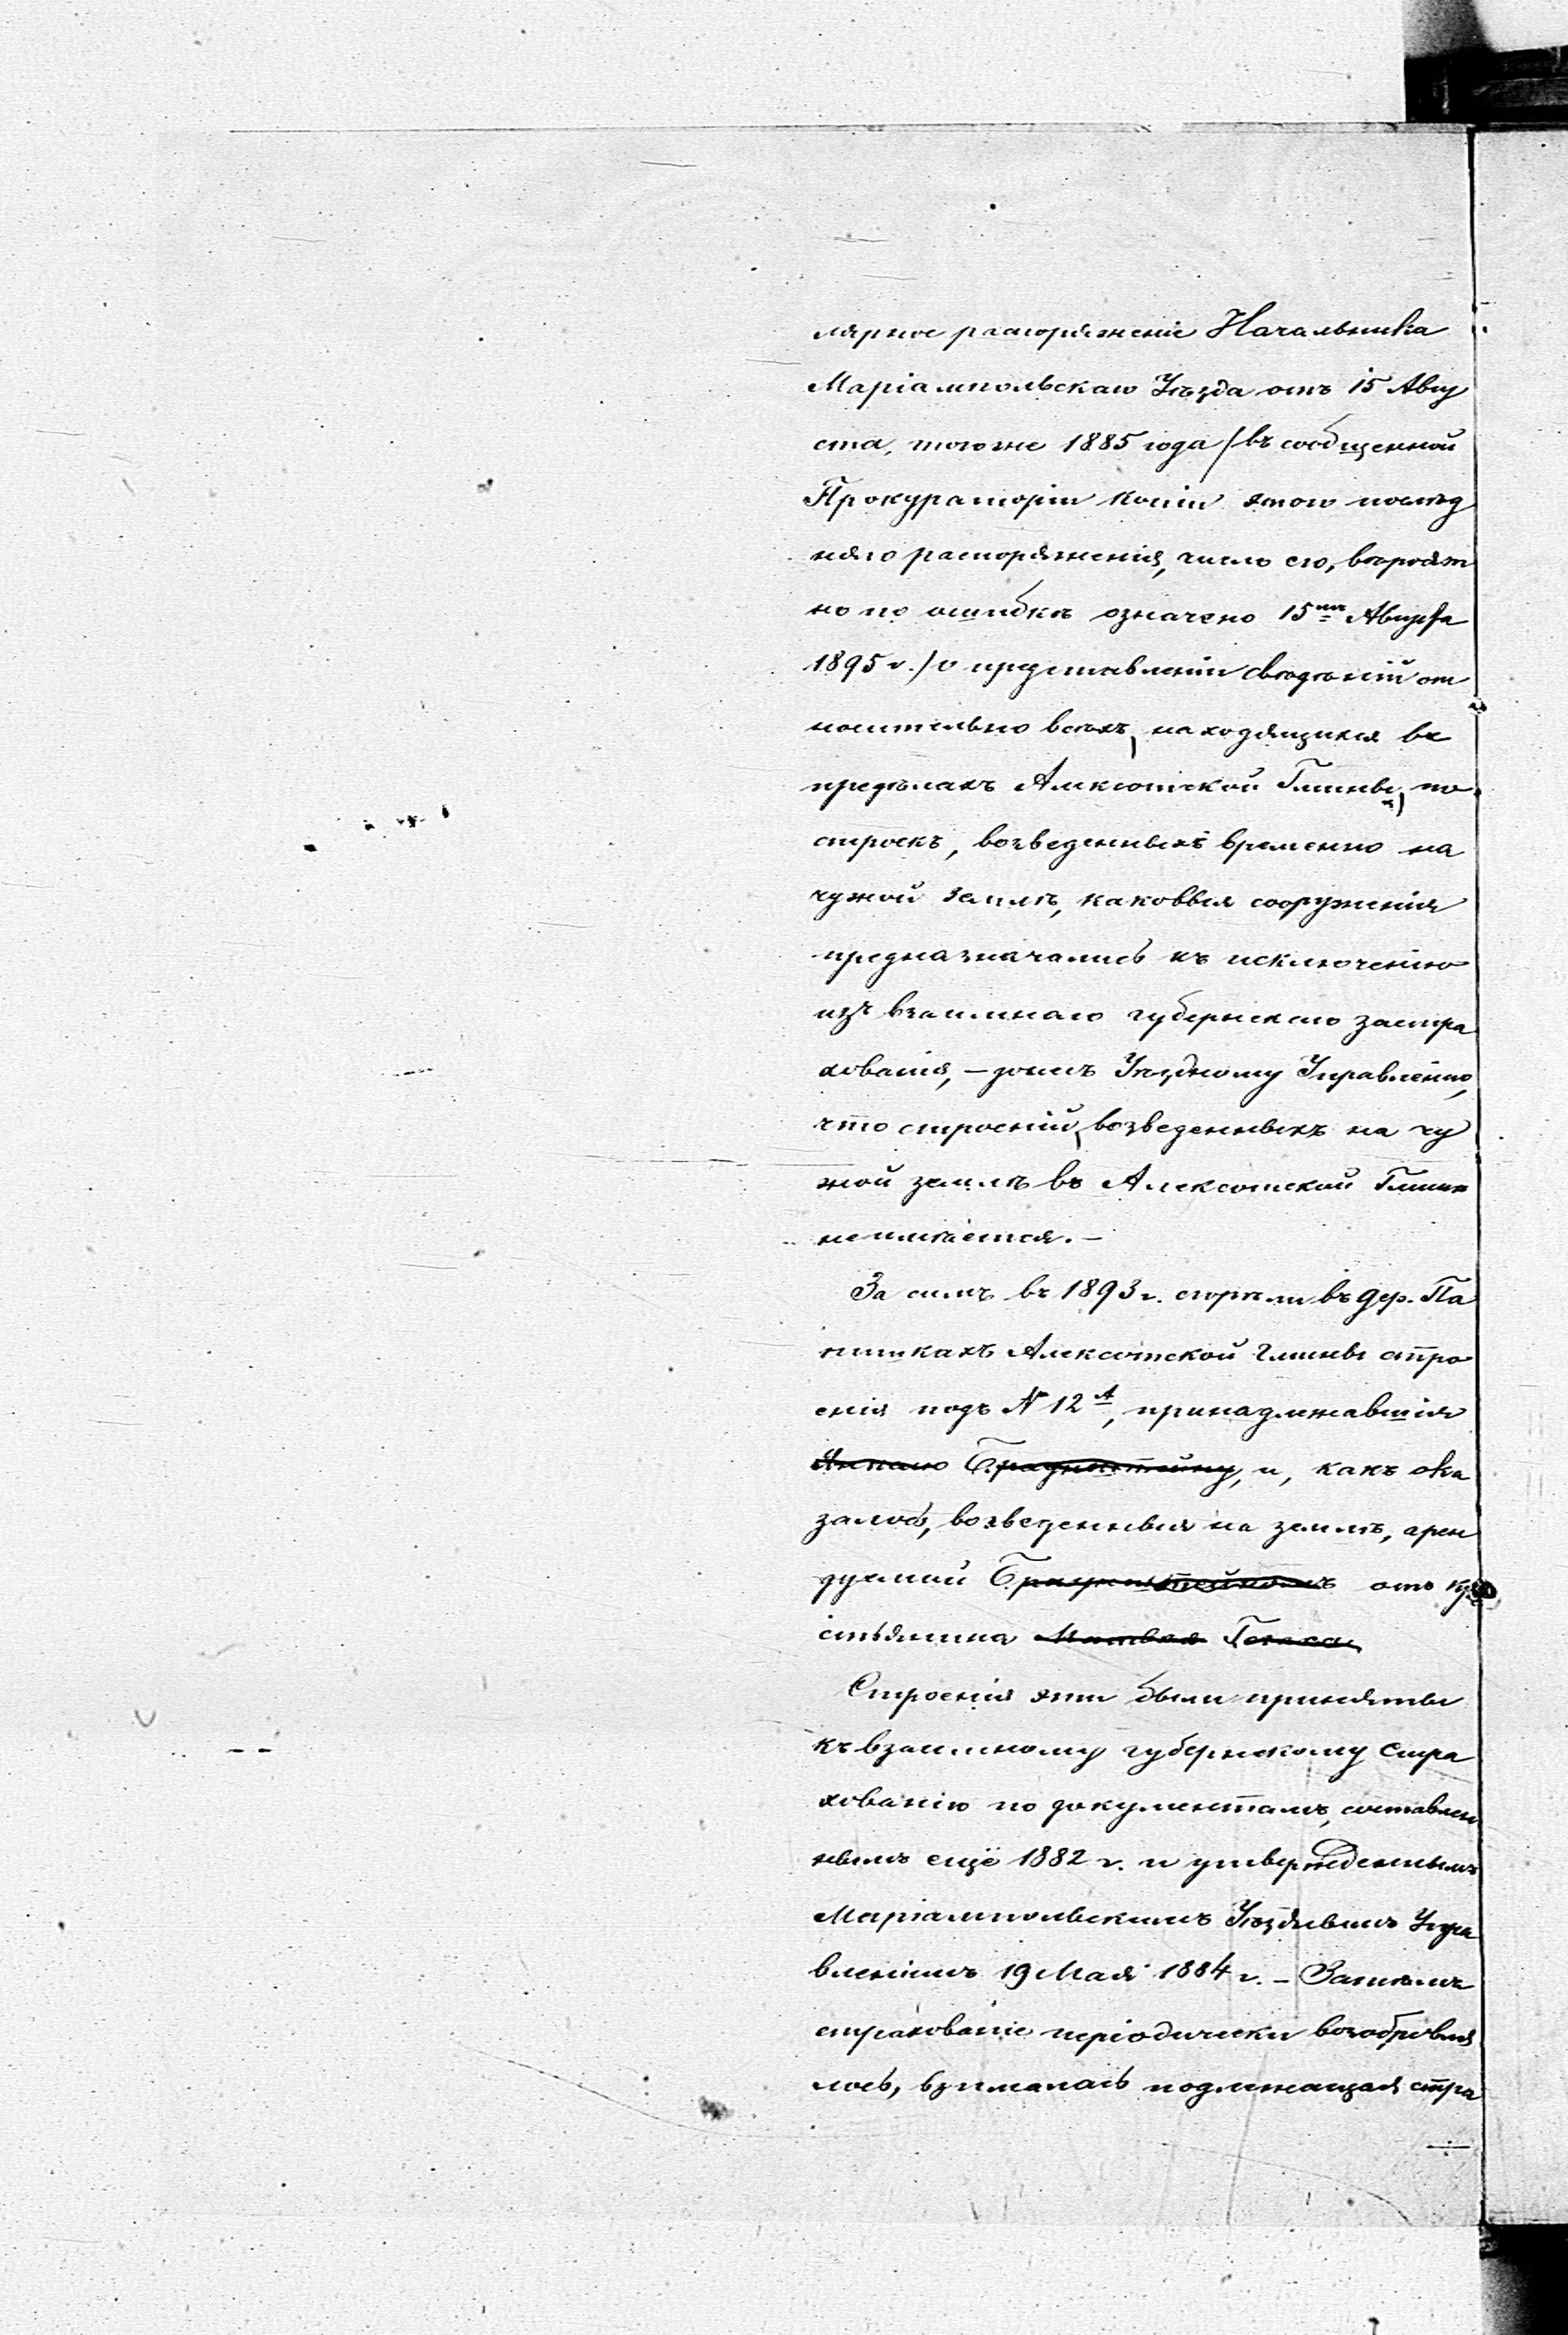 лярное распоряженіе Начальника
Маріампольскаго Уѣзда отъ 15 Авгу
ста, того же 1885 года /въ сообщенной
Прокураторіи копіи этого послѣд
няго распоряженія, число его, вѣроят
но по ошибкѣ означено 15мъ Августа
1895 г./ о представленіи свѣдѣній от
носительно всѣхъ, находящихся въ
предѣлахъ Алексотской Гмины, по
строекъ, возведенныхъ временно на
чужой землѣ, каковыя сооруженія
предназначались къ исключенію
изъ взаимнаго губернскаго застра
хованія, – донесъ Уѣздному Управленію,
что строеній, возведенныхъ на чу
жой землѣ въ Алексотской Гминѣ
не имѣется. –
За симъ въ 1893 г. сгорѣли въ дер. По
нишкахъ Алексотской гмины стро
енія подъ № 12А, принадлежавшія
и, какъ ока
залось, возведенныя на землѣ, арен
дуемой отъ кре
стьянина
Строенія эти были приняты
къ взаимному губернскому стра
хованію по документамъ, составлен
нымъ ещё 1882 г. и утвержденнымъ
Маріампольскимъ Уѣзднымъ Упра
вленіемъ 19 Мая 1884 г. – Затѣмъ
страхованіе періодически возобновля
лось, взималась подлежащая стра